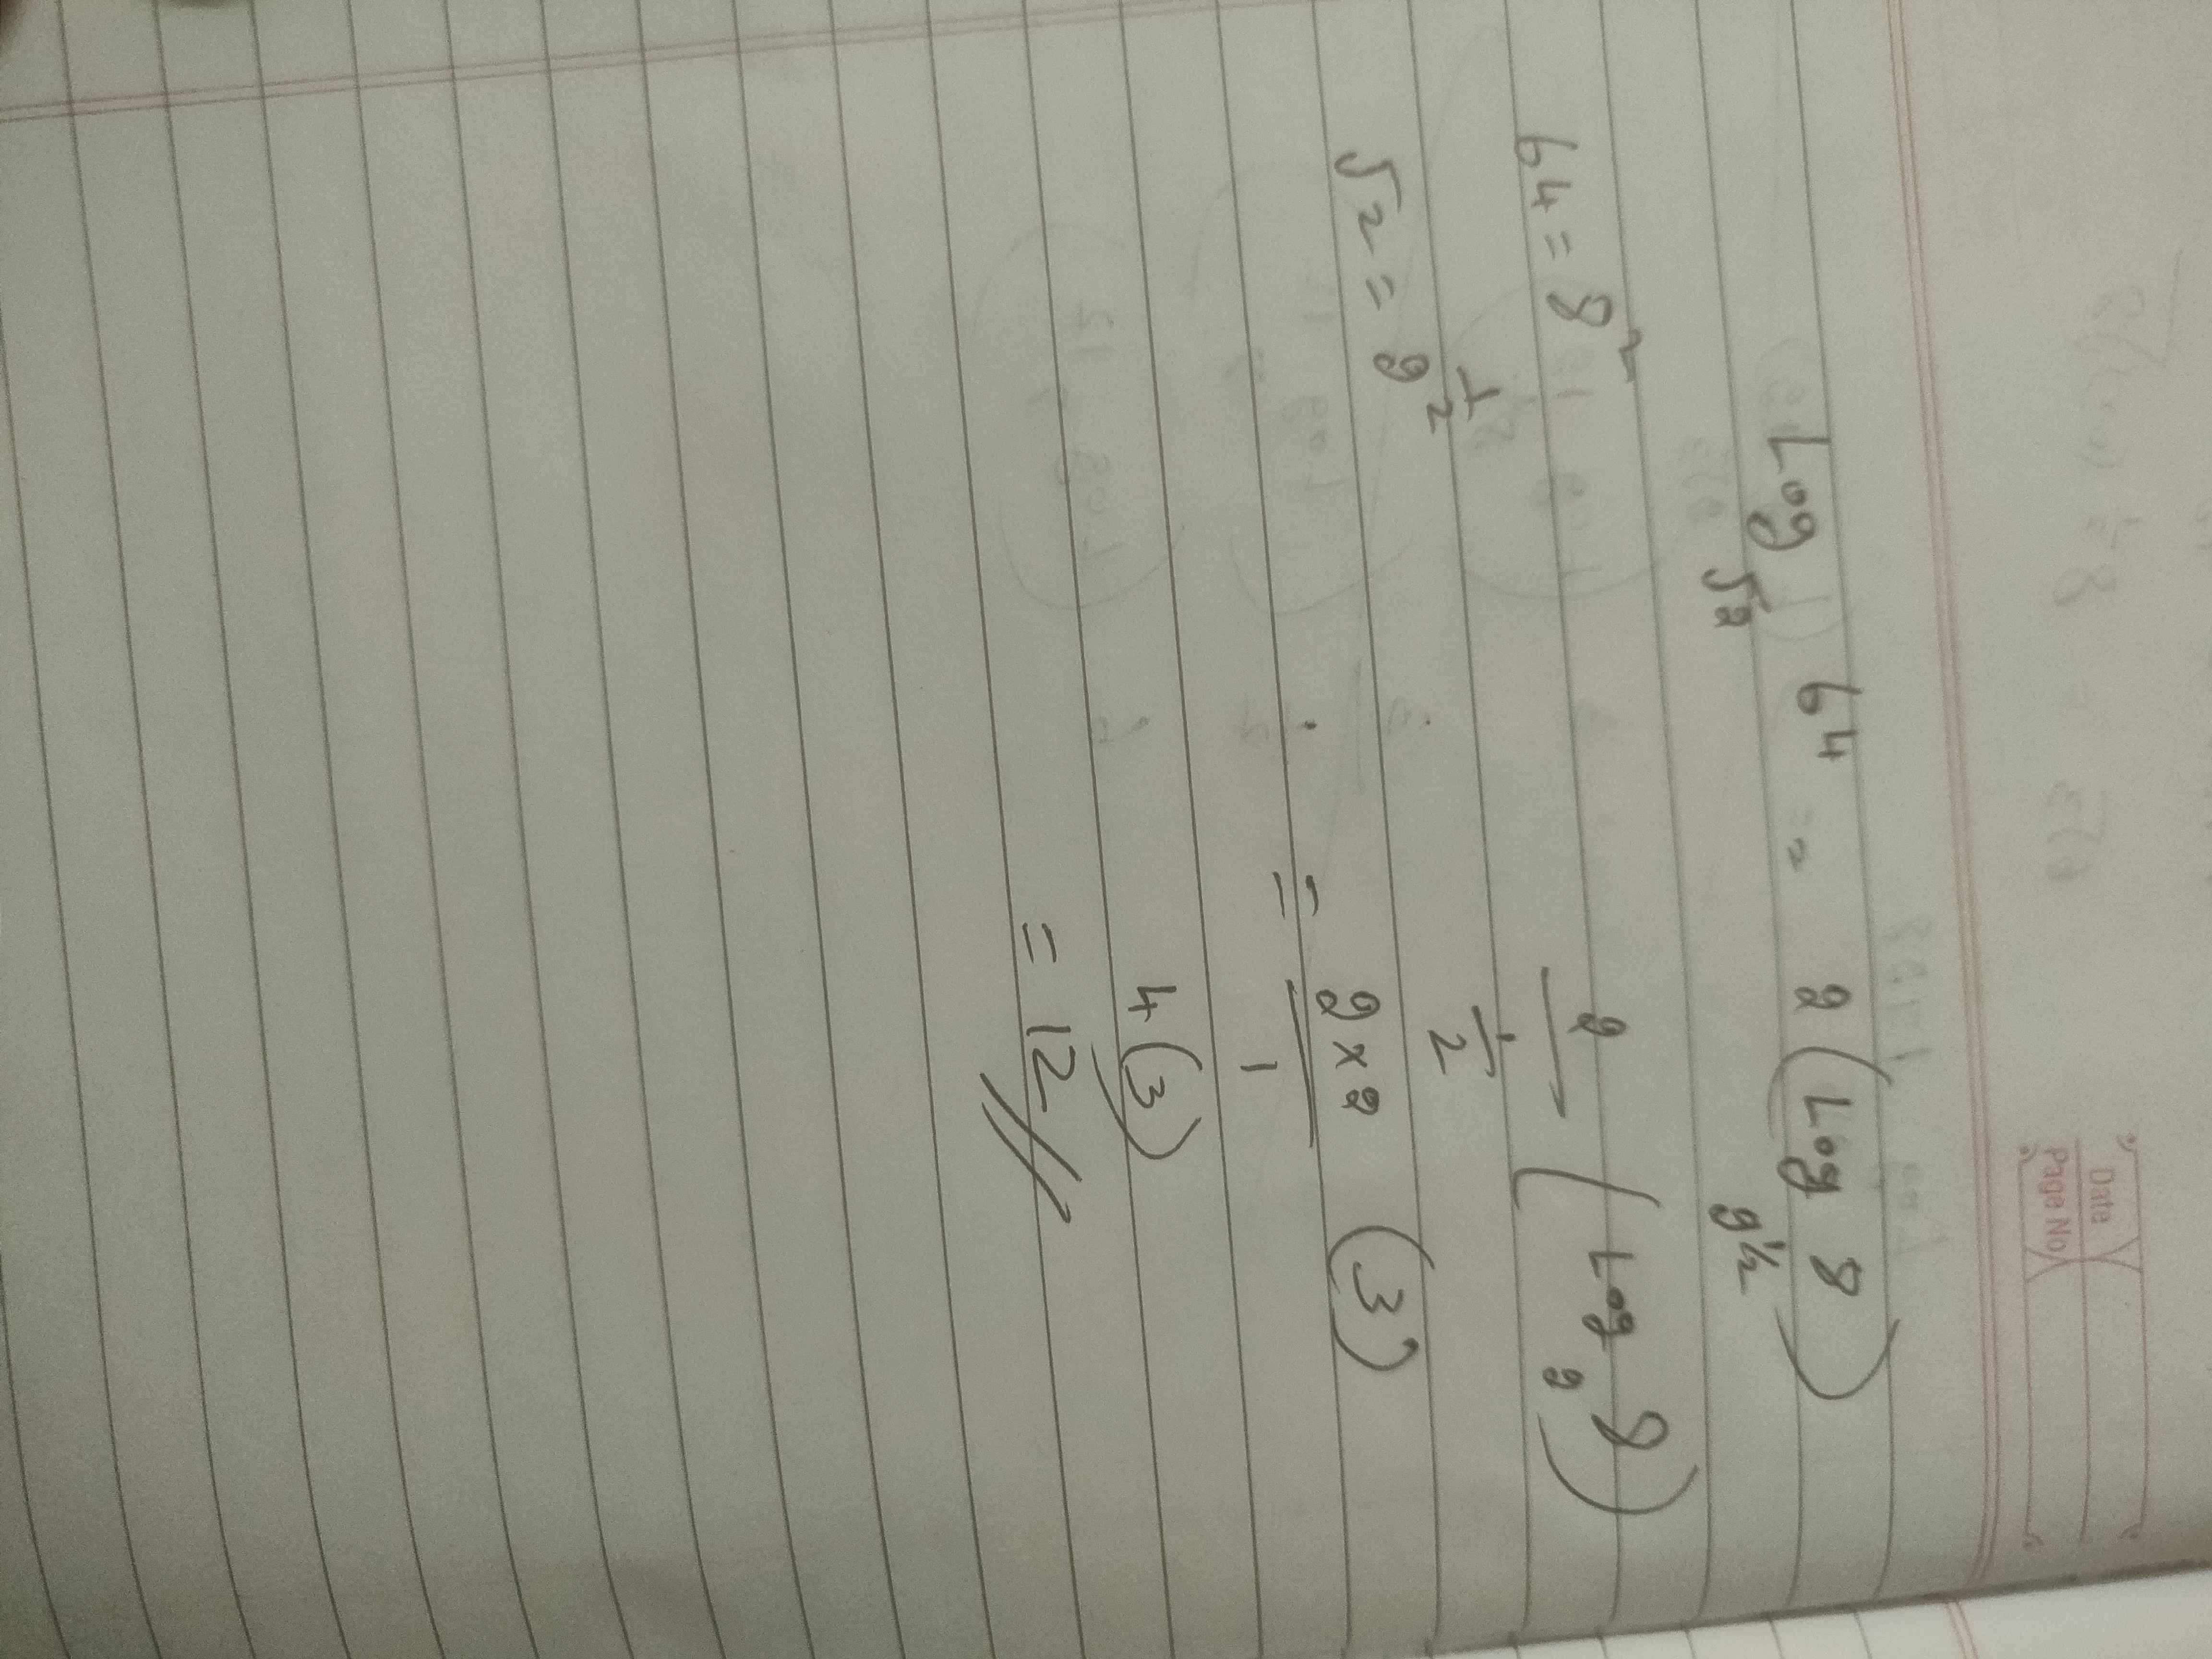 Date
Page No
Log √2 64 = 2 (Log 2^½ 8)
64 = 8²
2 / ½ (Log 2 8)
√2 = 2^½
= 2×2 / 1 (3)
4(3)
= 12 //